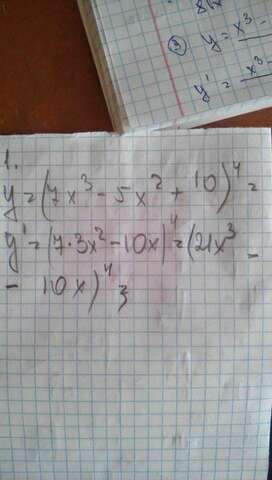 3) y = x³ -
y' = x³ -
1.
y=(7x³-5x²+10)⁴=
y'=(7·3x²-10x)⁴=(21x³-
-10x)⁴;